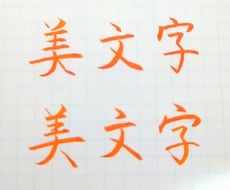 美文字
美文字